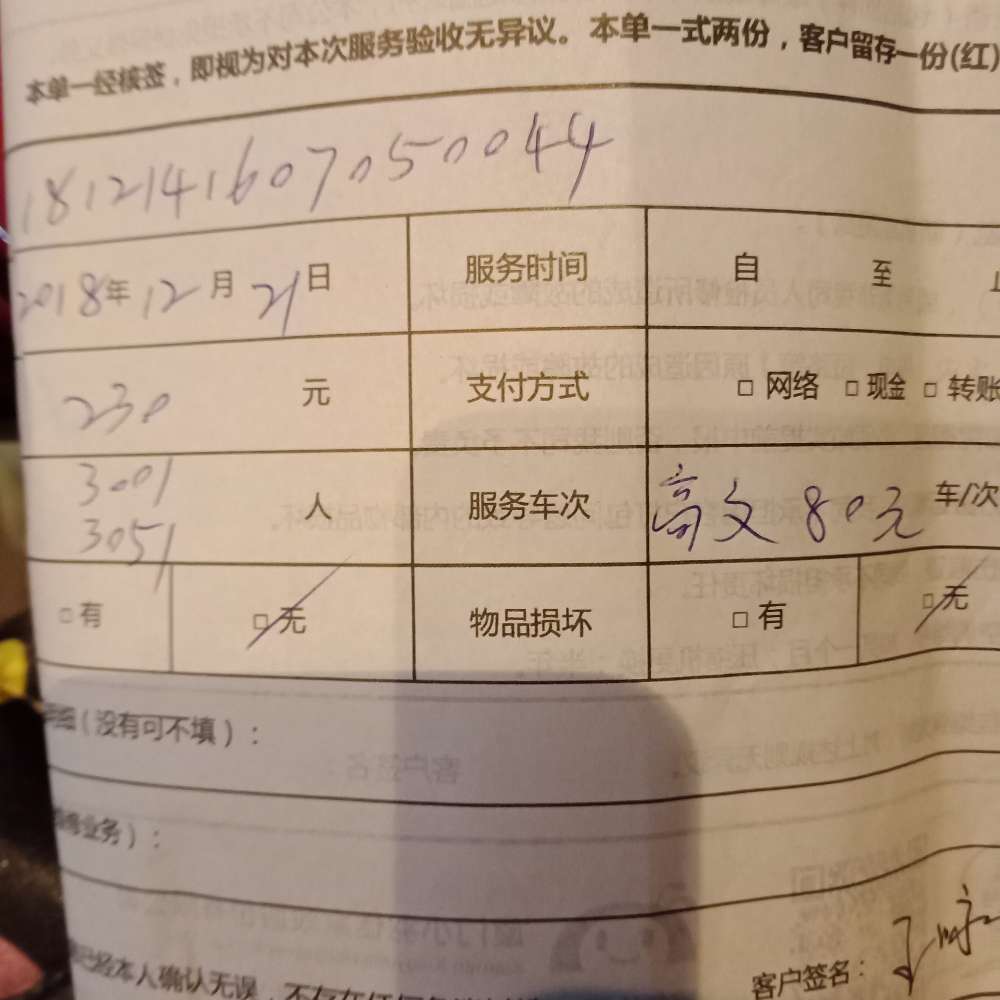 本单一经核签，即视为对本次服务验收无异议。本单一式两份，客户留存一份(红)
1812141607050044
2018年12月21日 服务时间 自 至
230 元 支付方式 □ 网络 □ 现金 □ 转账
3001
3051 人 服务车次 高文80元 车/次
□ 有 □ 无 物品损坏 □ 有 □ 无
(没有可不填)：
业务)：
已经本人确认无误，不存在任何
客户签名：